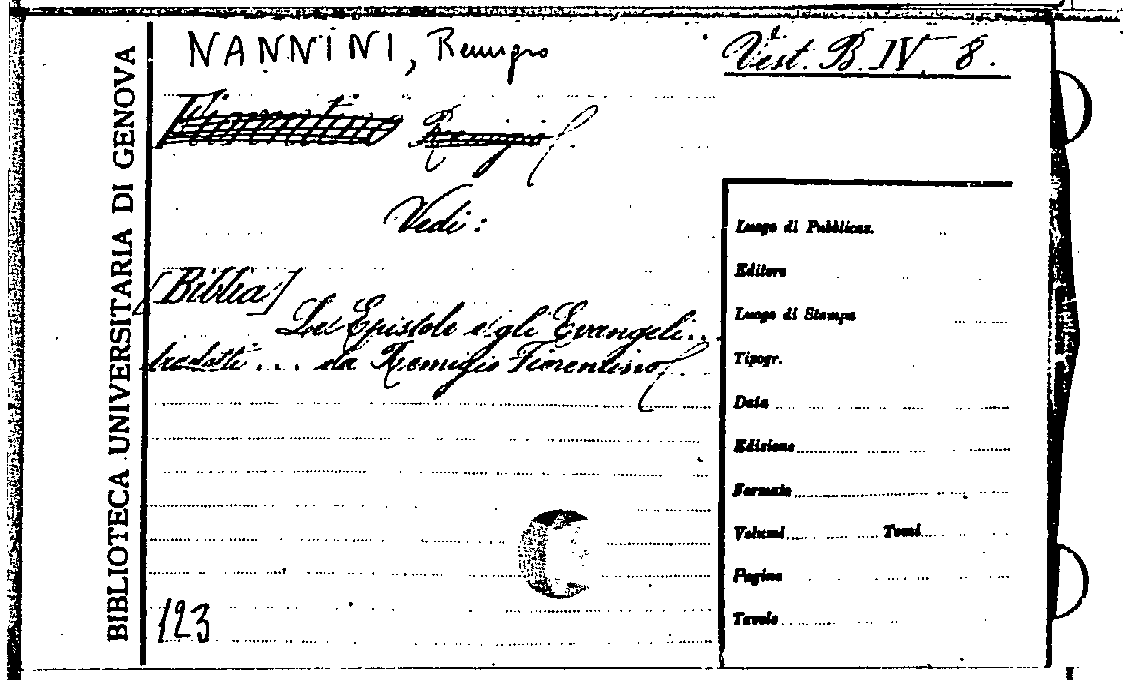 BIBLIOTECA UNIVERSITARIA DI GENOVA
NANNINI, Remigio
Vest. B. IV. 8.
Fiorentino Remigio
Vedi:
[Biblia]
Le Epistole e gli Evangeli...
tradotti ... da Remigio Fiorentino
123
Luogo di Pubblicaz.
Editore
Luogo di Stampa
Tipogr.
Data
Edizione
Formato
Volumi Tomi
Pagine
Tavole